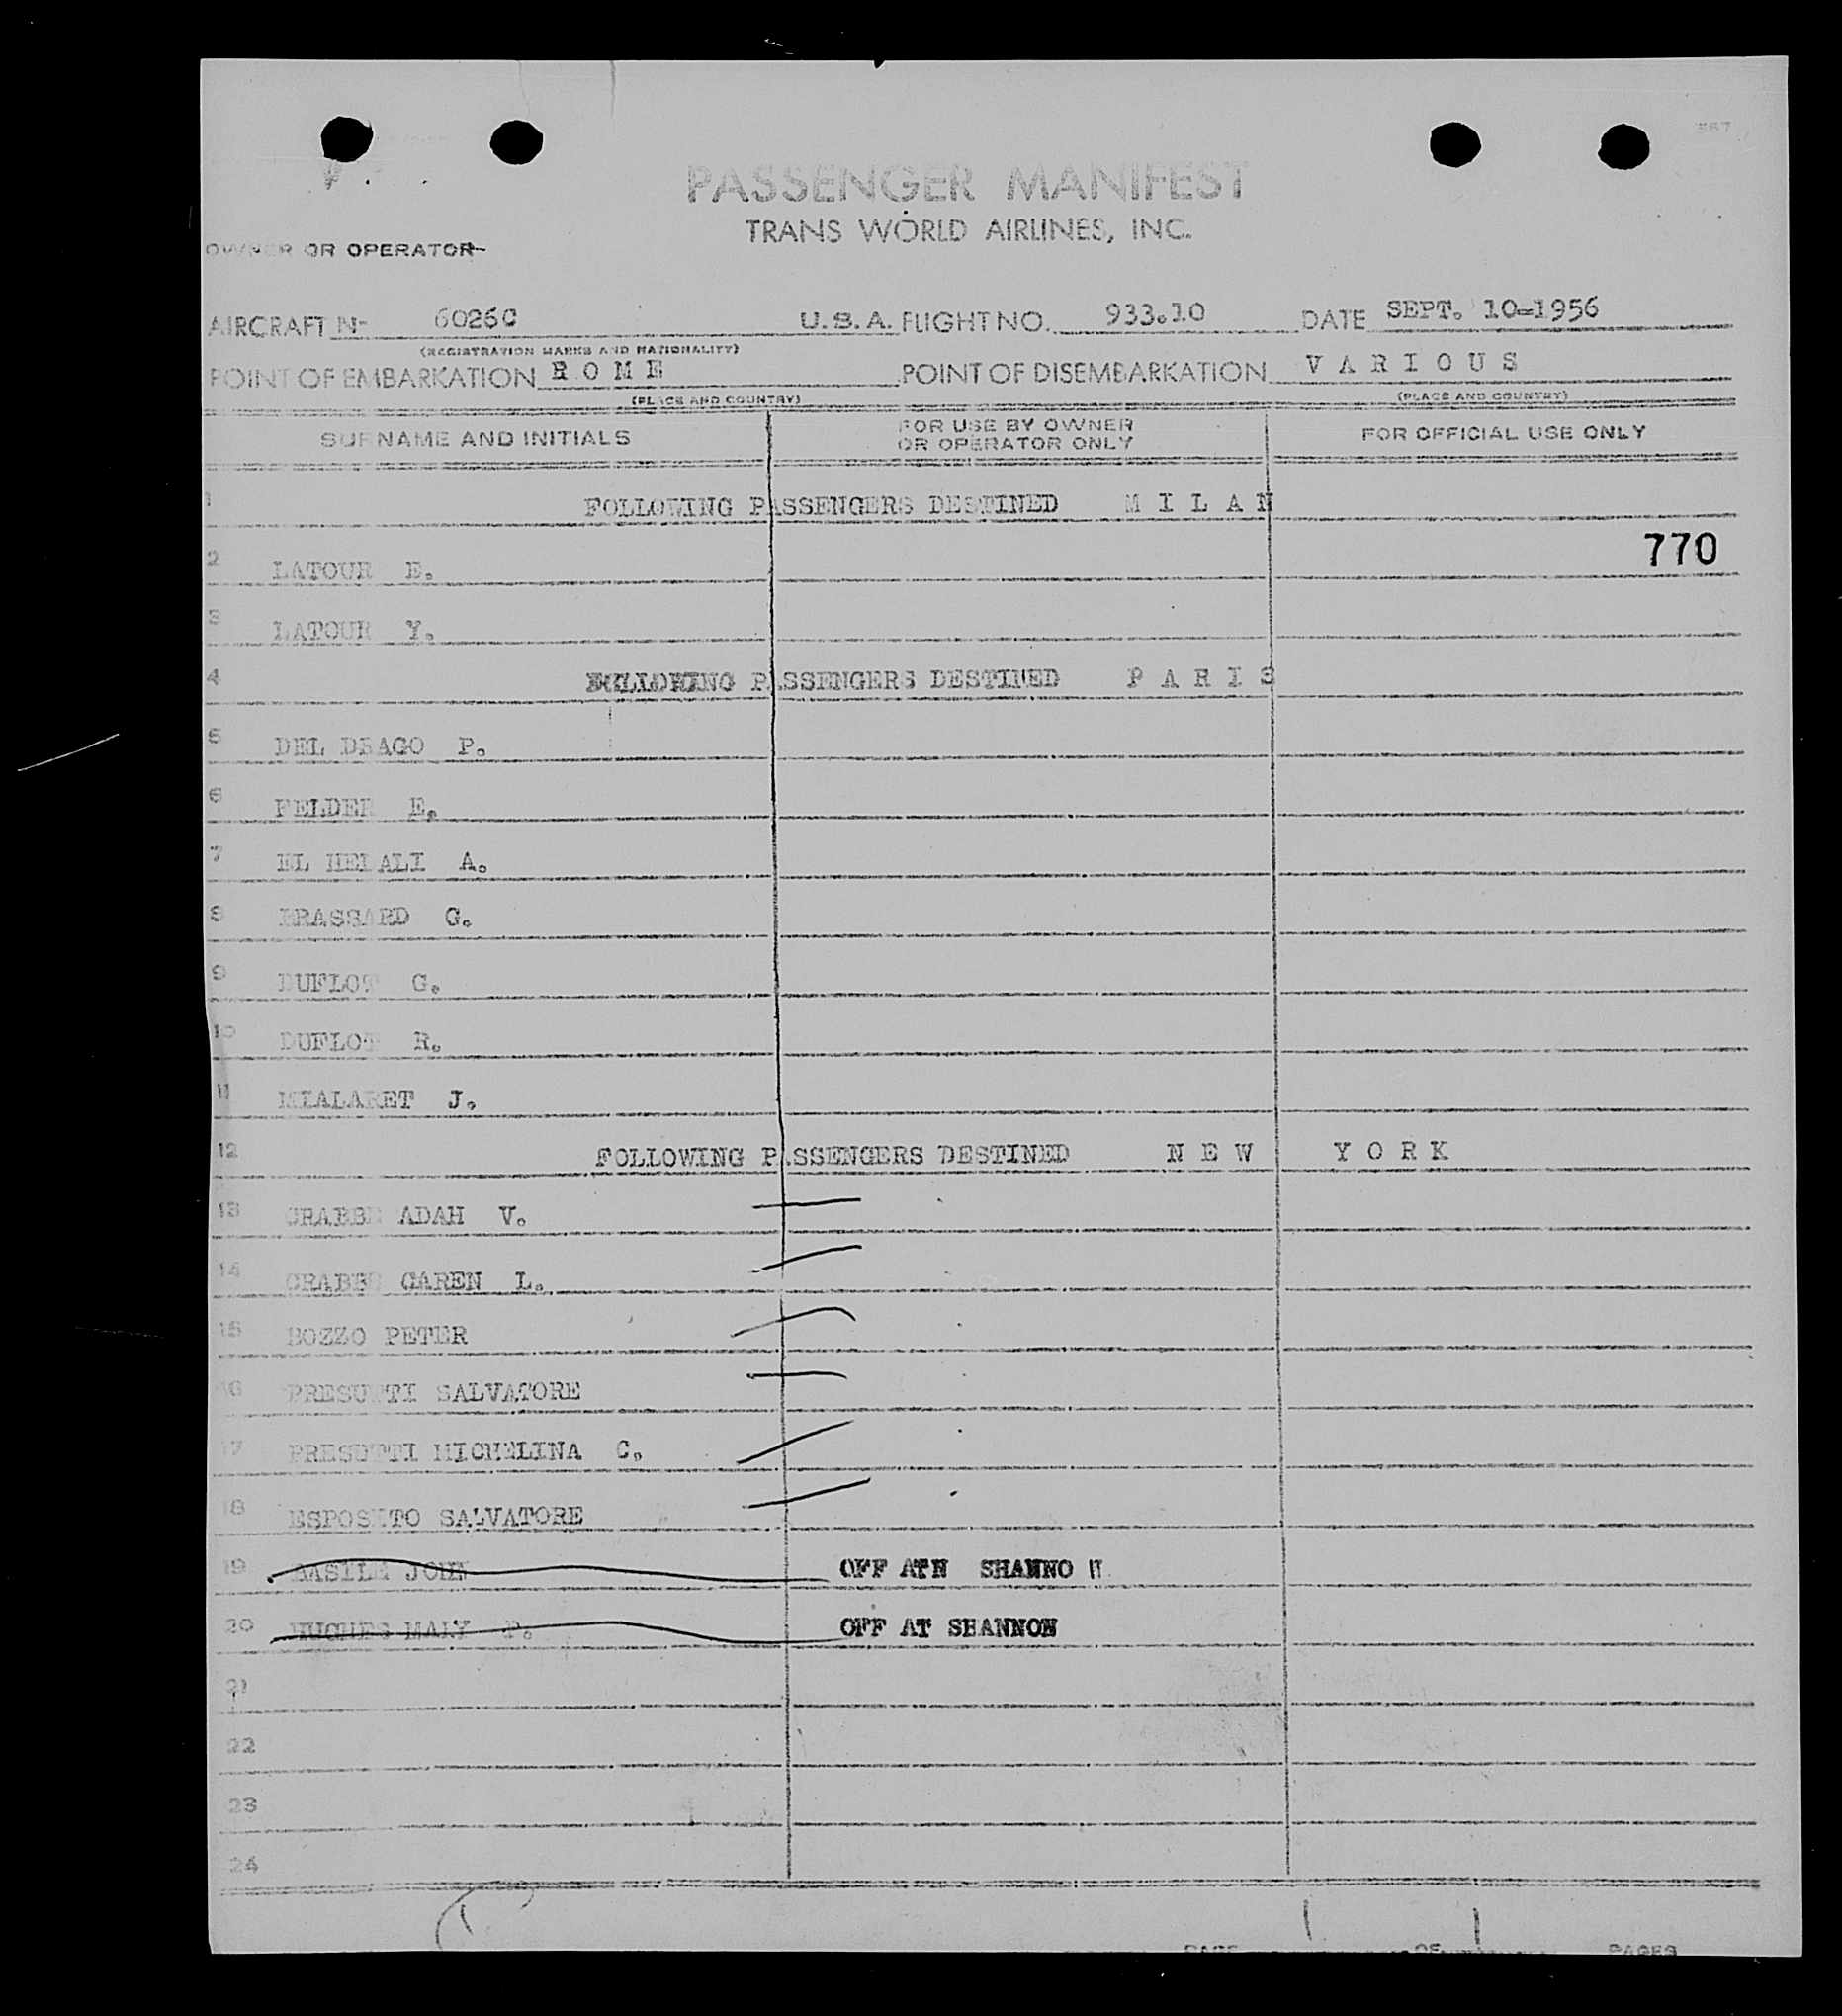 PASSENGER MANIFEST
TRANS WORLD AIRLINES, INC.
OWNER OR OPERATOR
AIRCRAFT N- 6026C U.S.A. FLIGHT NO. 933.10 DATE SEPT. 10-1956
(REGISTRATION MARKS AND NATIONALITY)
POINT OF EMBARKATION R O M E POINT OF DISEMBARKATION V A R I O U S
(PLACE AND COUNTRY) (PLACE AND COUNTRY)
SURNAME AND INITIALS FOR USE BY OWNER OR OPERATOR ONLY FOR OFFICIAL USE ONLY
1 FOLLOWING PASSENGERS DESTINED M I L A N
770
2 LATOUR E.
3 LATOUR Y.
4 FOLLOWING PASSENGERS DESTINED P A R I S
5 DEL DRAGO P.
6 FELDER E.
7 EL HELALI A.
8 BRASSARD G.
9 DUFLOT G.
10 DUFLOT R.
11 MIALARET J.
12 FOLLOWING PASSENGERS DESTINED N E W Y O R K
13 CRABBE ADAH V.
14 CRABBE CAREN L.
15 BOZZO PETER
16 PRESUTTI SALVATORE
17 PRESUTTI MICHELINA C.
18 ESPOSITO SALVATORE
19 JOHN OFF ATN SHANNO N
20 HUGHES MALY P. OFF AT SHANNON
21
22
23
24
PAGE OF PAGES